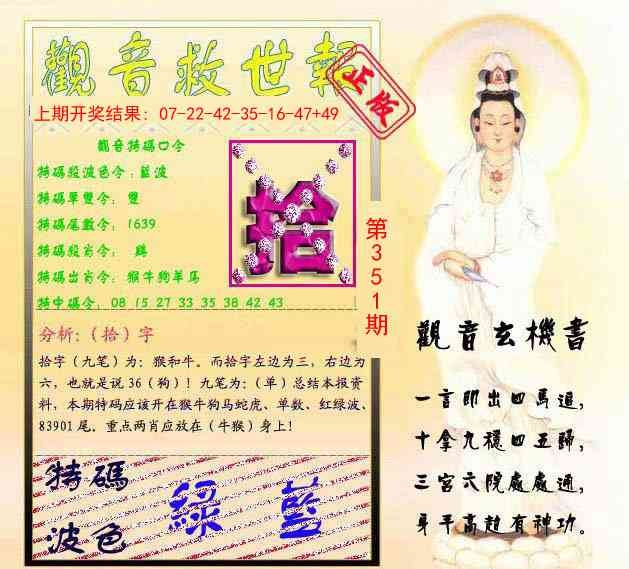 觀音救世報
正版
上期开奖结果：07-22-42-35-16-47+49
觀音特碼口令
特碼殺波色令：藍波
特碼單雙令：雙
特碼尾數令：1639
特碼殺肖令：鷄
特碼出肖令：猴牛狗羊馬
特中碼令：08 15 27 33 35 38 42 43
拾
第351期
分析:（拾）字
拾字（九笔）为：猴和牛。而拾字左边为三，右边为
六，也就是说 36（狗）！九笔为：（单）总结本报资
料，本期特码应该开在猴牛狗马蛇虎、单数、红绿波、
83901 尾。重点两肖应放在（牛猴）身上！
特碼
波色
綠 藍
觀音玄機書
一言即出四馬追，
十拿九穩四五歸，
三宮六院處處通，
身平高超有神功。